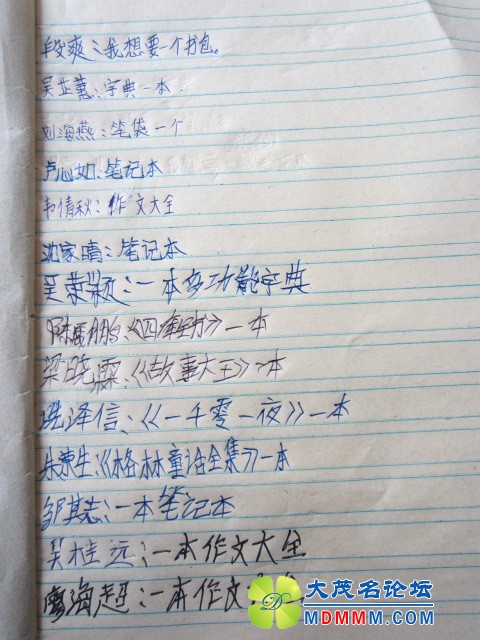 段爽:我想要一个书包。
吴芷蕙:字典一本.
刘海燕:笔袋一个
卢心如:笔记本
韦倩秋:作文大全
沈家晴:笔记本
吴荣颖:一本多功能字典
鹏:《四库全书》一本
梁晓霖:《故事大王》一本
冼泽信、《一千零一夜》一本
朱荣生《格林童话全集》一本
邹其志:一本笔记本
吴桂远:一本作文大全
廖海超:一本作文
大茂名论坛
MDMMM.COM